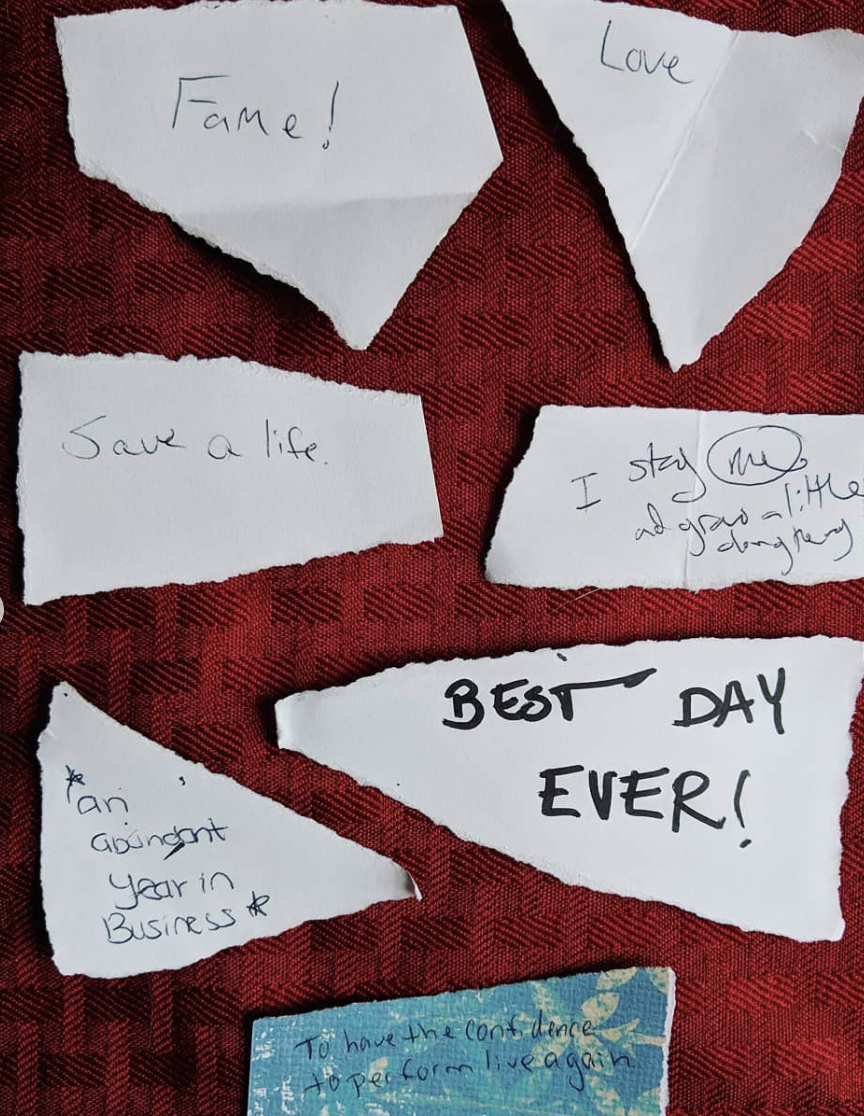 Fame!
Love
Save a life.
I stay me
ad grow a little
*an
abundant
year in
Business*
BEST DAY
EVER!
To have the confidence
to perform live again.